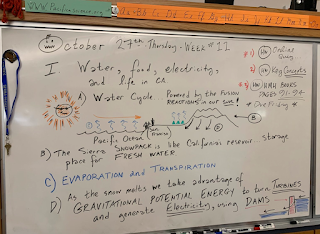 October 29th - Thursday - Week # 11
I Water, food, electricity,
and life in CA
A) Water Cycle Powered by the Fusion
REACTIONS in our sun!
Pacific Ocean
San Francisco
B
B) The Sierra SNOWPACK is like Californias reservoir storage
place for FRESH WATER
C) EVAPORATION and TRANSPIRATION
D) As the snow melts we take advantage of
GRAVITATIONAL POTENTIAL ENERGY to turn TURBINES
and generate Electricity, using DAMS
#1) HW Online
#2) HW Key Concepts
#3) HW HMH Books
PAGES 91-94
* Due Friday *